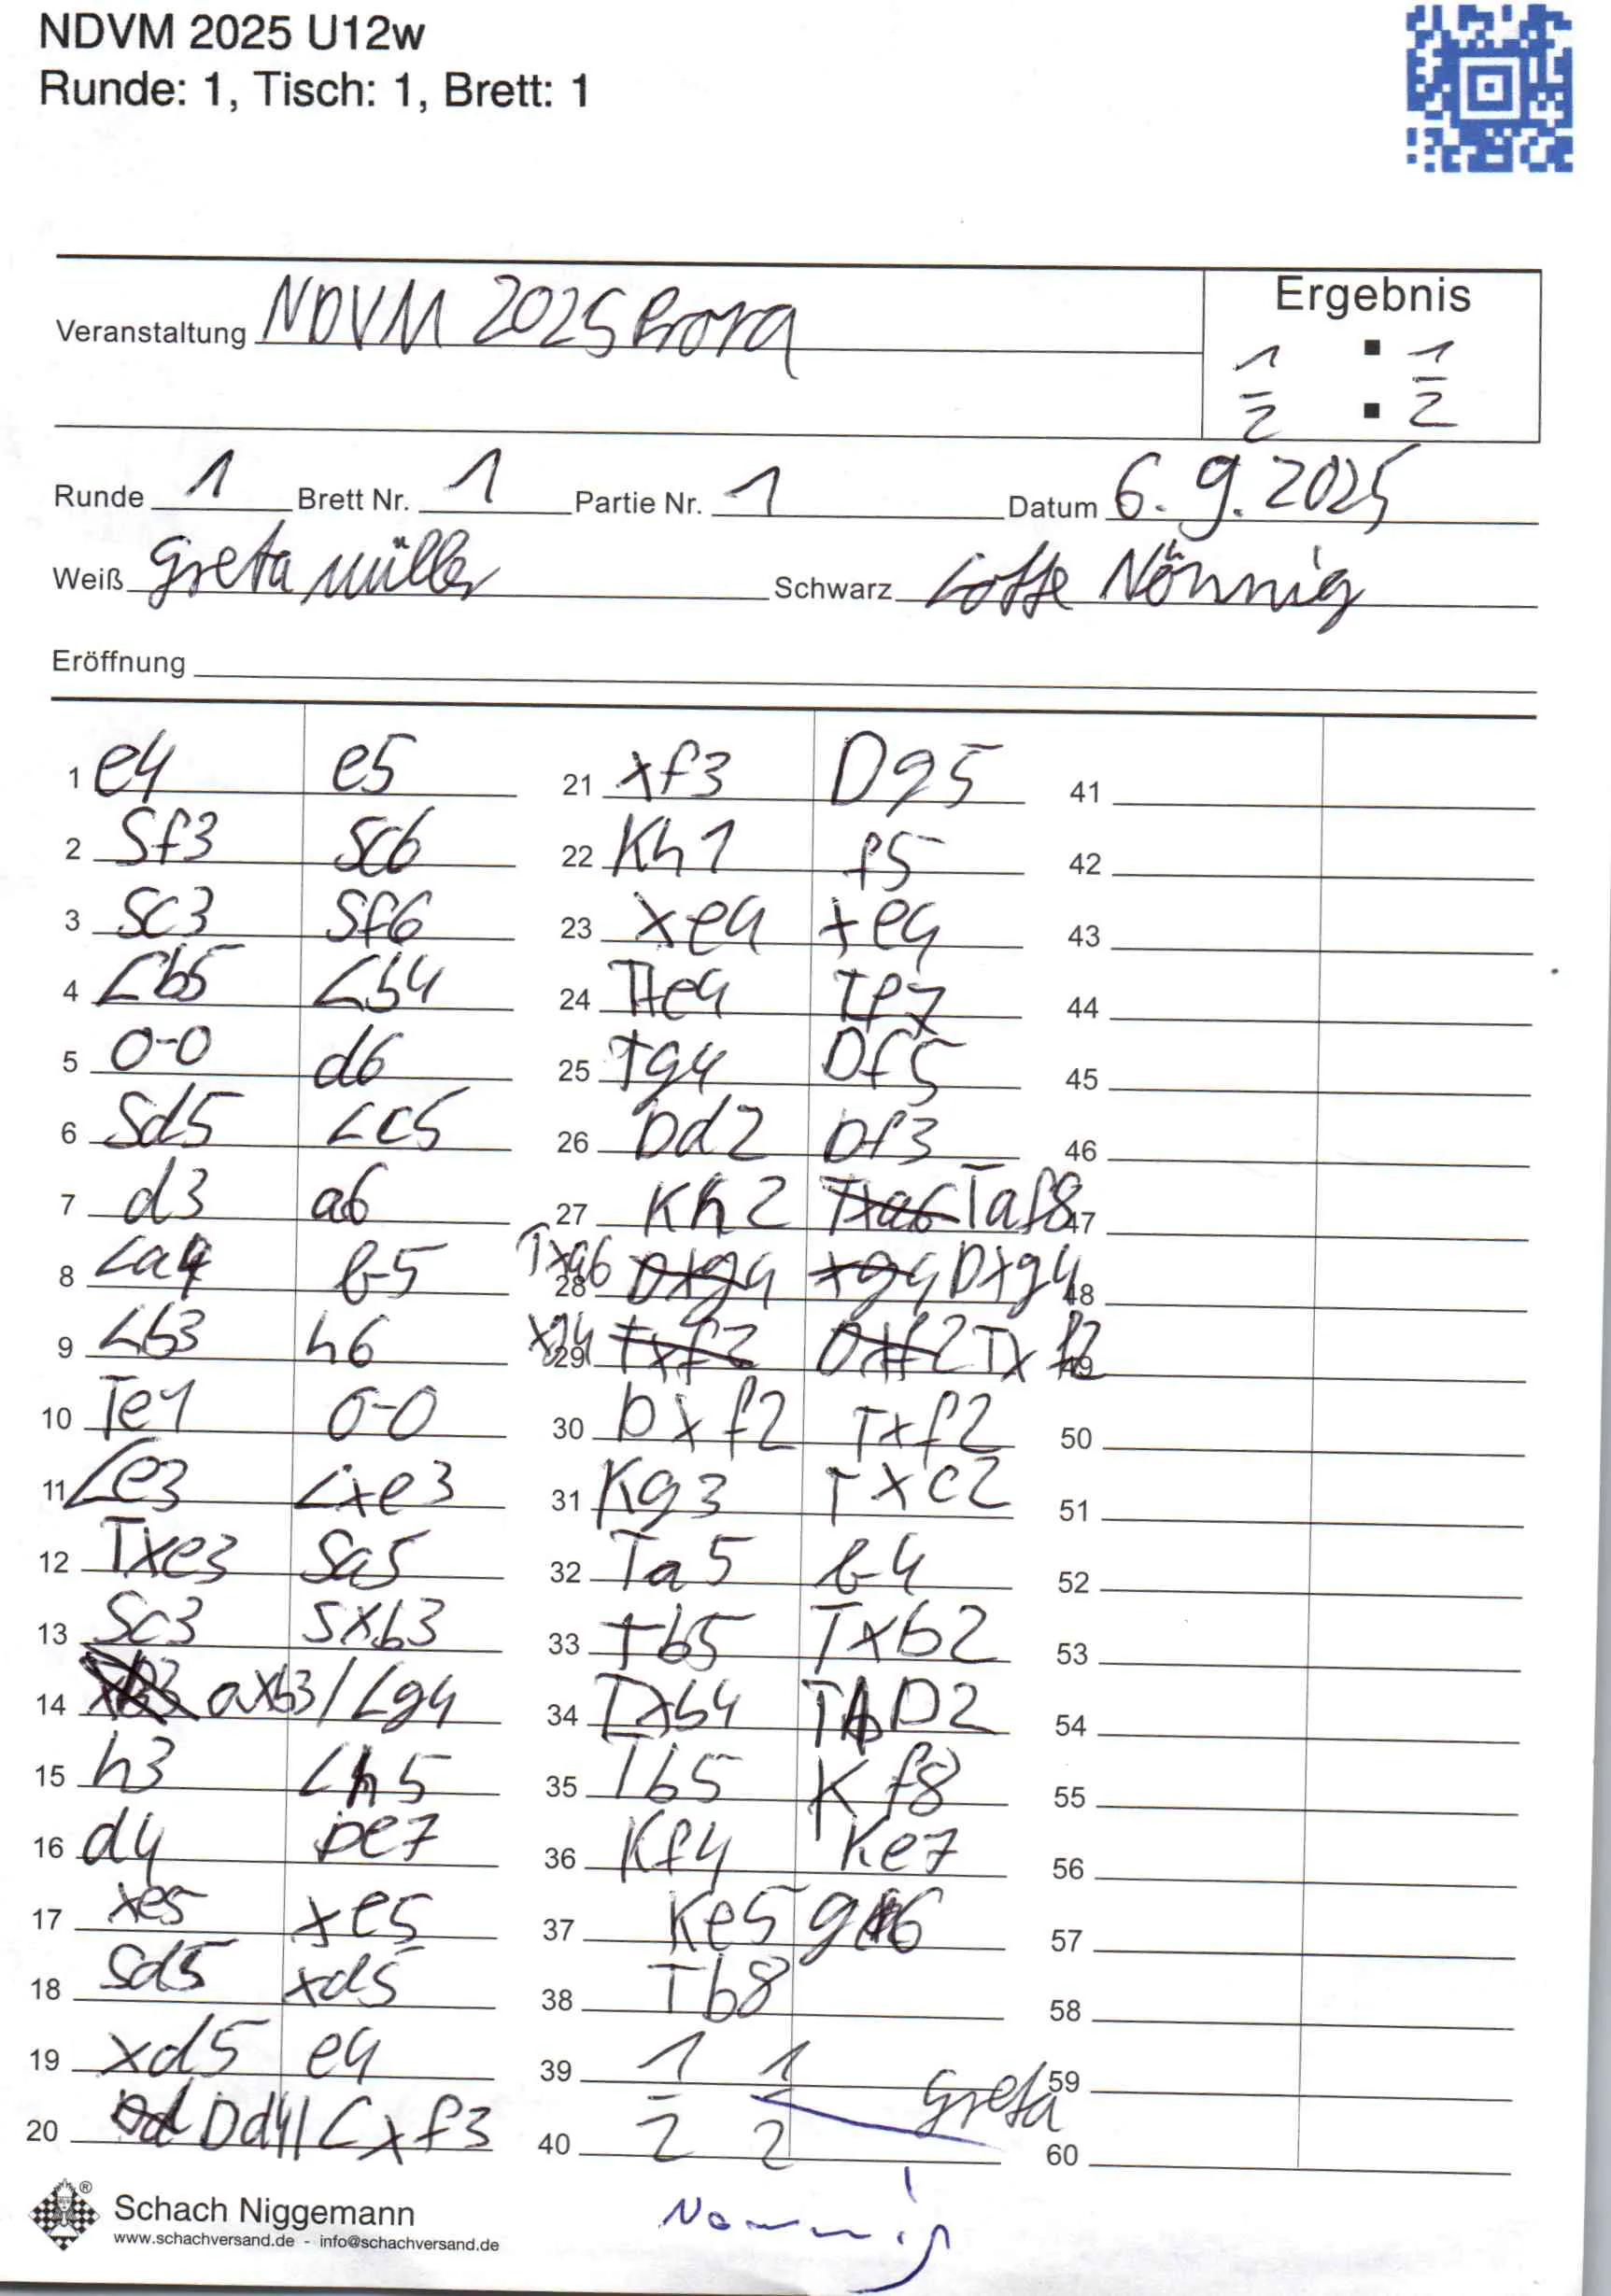 NDVM 2025 U12w
Runde: 1, Tisch: 1, Brett: 1
Veranstaltung NDVM 2025 Prora
Ergebnis
1/2 : 1/2
Runde 1 Brett Nr. 1 Partie Nr. 1 Datum 6.9.2025
Weiß Greta Müller Schwarz Lotte Nönnig
Eröffnung
1 e4 e5
2 Sf3 Sc6
3 Sc3 Sf6
4 Lb5 Lb4
5 0-0 d6
6 Sd5 Lc5
7 d3 a6
8 La4 b5
9 Lb3 h6
10 Te1 0-0
11 Le3 Lxe3
12 Txe3 Sa5
13 Sc3 Sxb3
14 axb3/Lg4
15 h3 Lh5
16 d4 De7
17 xe5 xe5
18 Sd5 xd5
19 xd5 e4
20 Dd4 Lxf3
21 xf3 Dg5
22 Kh1 f5
23 xe4 xe4
24 Txe4 Tf7
25 Tg4 Df5
26 Dd2 Df3
27 Kh2 Txa6 Taf8
28 Txa6 Dxg4 xg4 Dxg4
29 xg4 Txf2 Dxf2 Txf2
30 Dxf2 Txf2
31 Kg3 Txc2
32 Ta5 b4
33 Tb5 Txb2
34 Txb4 TD2
35 Tb5 Kf8
36 Kf4 Ke7
37 Ke5 g6
38 Tb8
39 1 1
40 2 2
Greta
Nönnig
41
42
43
44
45
46
47
48
49
50
51
52
53
54
55
56
57
58
59
60
Schach Niggemann
www.schachversand.de - info@schachversand.de